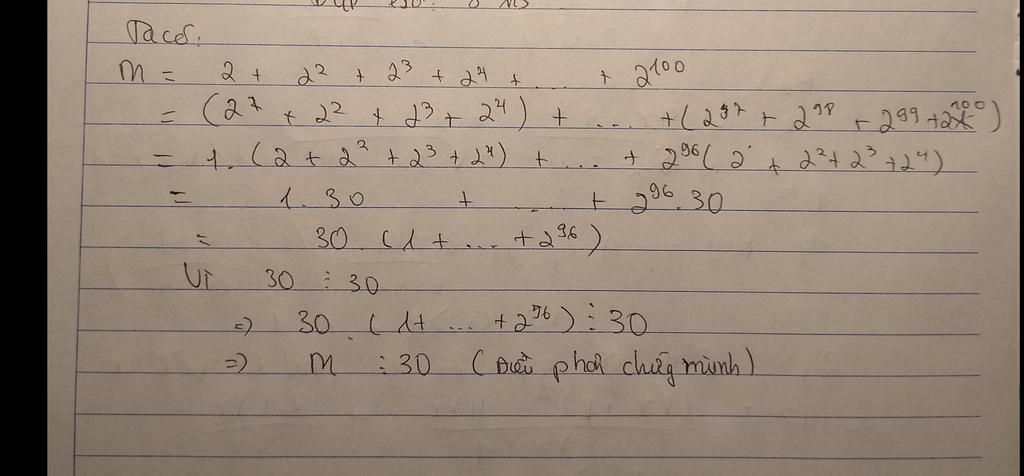 Ta có:
M = 2 + 2² + 2³ + 2⁴ + ... + 2¹⁰⁰
= (2¹ + 2² + 2³ + 2⁴) + ... + (2⁹⁷ + 2⁹⁸ + 2⁹⁹ + 2¹⁰⁰)
= 1. (2 + 2² + 2³ + 2⁴) + ... + 2⁹⁶ (2 + 2² + 2³ + 2⁴)
= 1.30 + ... + 2⁹⁶.30
= 30. (1 + ... + 2⁹⁶)
Vì 30 ⋮ 30
=> 30. (1 + ... + 2⁹⁶) ⋮ 30
=> M ⋮ 30 (Điều phải chứng minh)